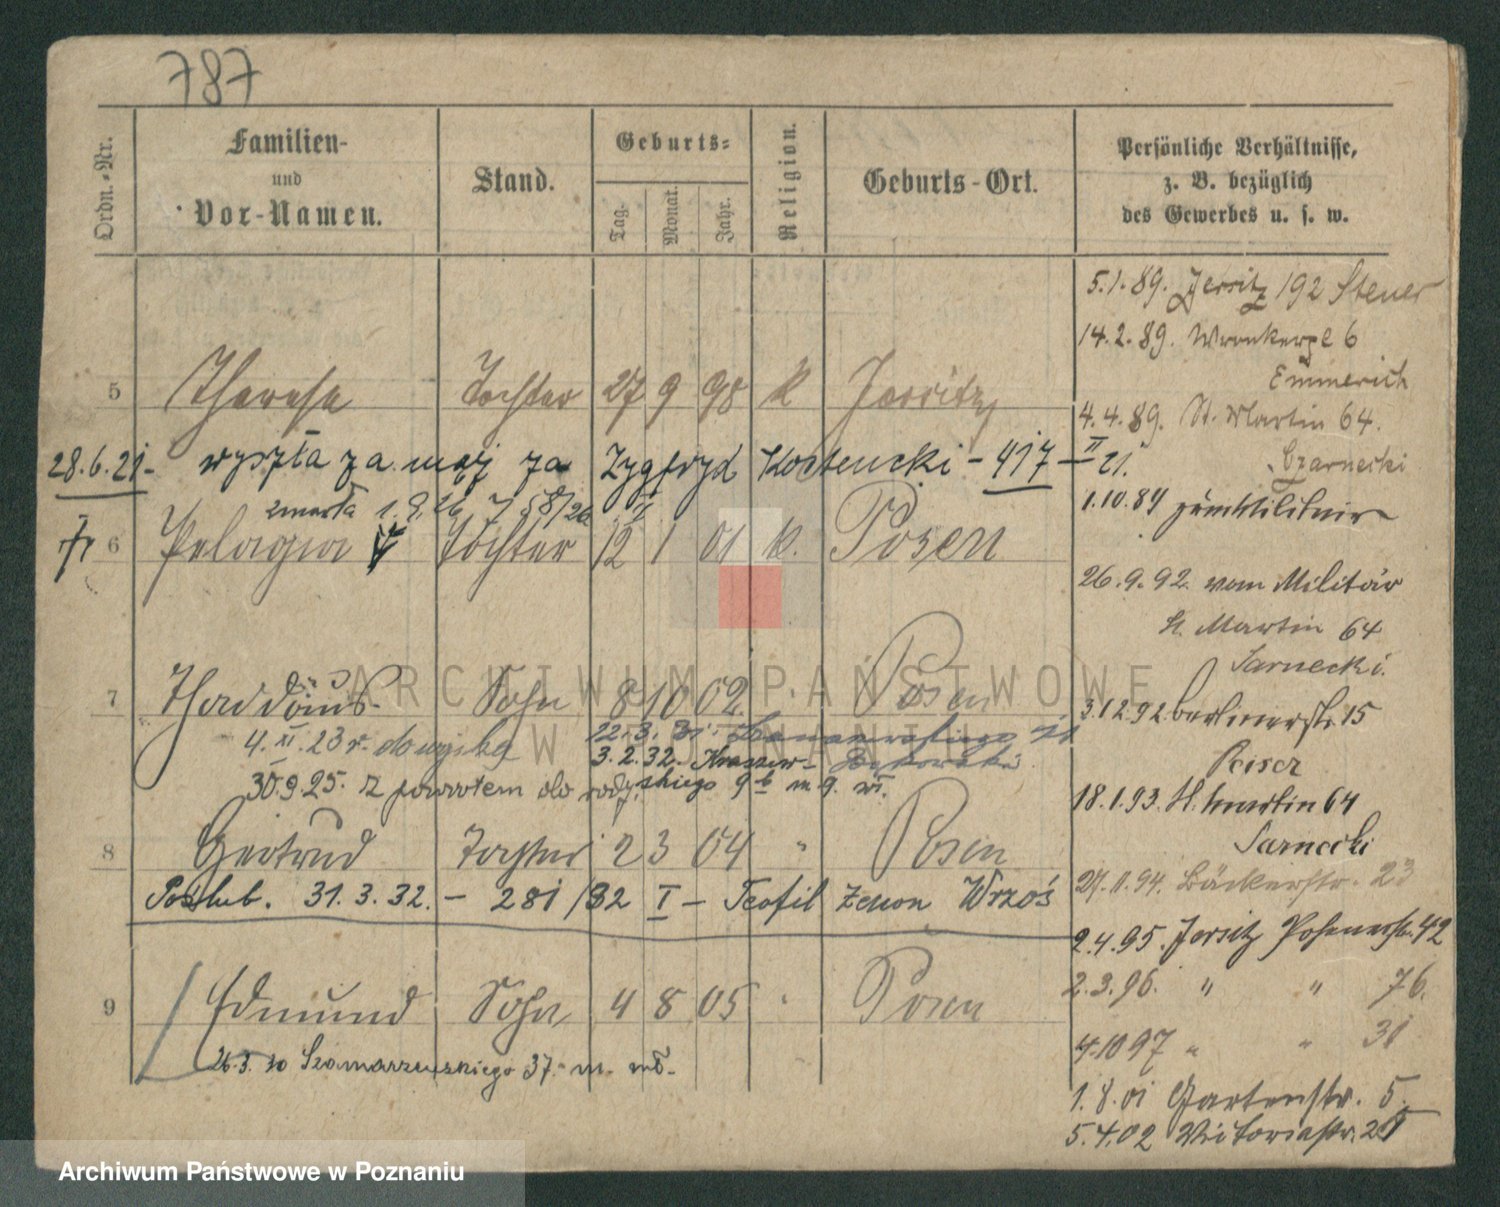 787
Ordn.-Nr.
Familien-
und
Vor-Namen.
Stand.
Geburts-
Tag. Monat. Jahr.
Religion.
Geburts-Ort.
Persönliche Verhältnisse,
z. B. bezüglich
des Gewerbes u. s. w.
5 Therese Tochter 27 9 98 k Jersitz
28.6.21- wyszła za mąż za Zygfryd - 417 - II 21.
zmarła 1.8.26 II
6 Pelagia Tochter 12 1 01 k. Posen
7 Thaddäus Sohn 8 10 02 " Posen
4. XI. 23 r.
22.3.31.
3.2.32.
30.9.25. z powrotem do skiego 9 b m 9.
8 Gertrud Tochter 2 3 04 " Posen
Poślub. 31.3.32. - 281/32 I - Teofil Zenon Wrzoś
9 Edmund Sohn 4 8 05 " Posen
26.3.30 Szamarzewskiego 37. m. wł.
5.1.89. Jersitz 192 Steuer
14.2.89. Wronkerpl 6
Emmerich
4.4.89. St. Martin 64.
Czarnecki
1.10.89 zum Militair
26.9.92. vom Militär
St. Martin 64
Sarnecki.
3.12.92. Berlinerstr. 15
Peiser
18.1.93. St. Martin 64
Sarnecki
27.11.94. Bäckerstr. 23
2.4.95. Jersitz Posenerstr. 42
2.3.96. " " 76.
4.10 97 " " 31
1.8.01 Gartenstr. 5.
5.4.02 Victoriastr. 21
ARCHIWUM PAŃSTWOWE
W POZNANIU
Archiwum Państwowe w Poznaniu